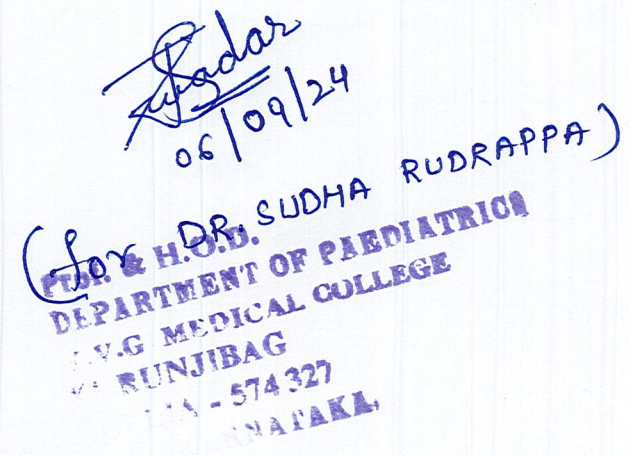 06/09/24
(for DR. SUDHA RUDRAPPA)
Prof. & H.O.D.
DEPARTMENT OF PAEDIATRICS
V.G MEDICAL COLLEGE
KURUNJIBAG
- 574 327
RNATAKA.